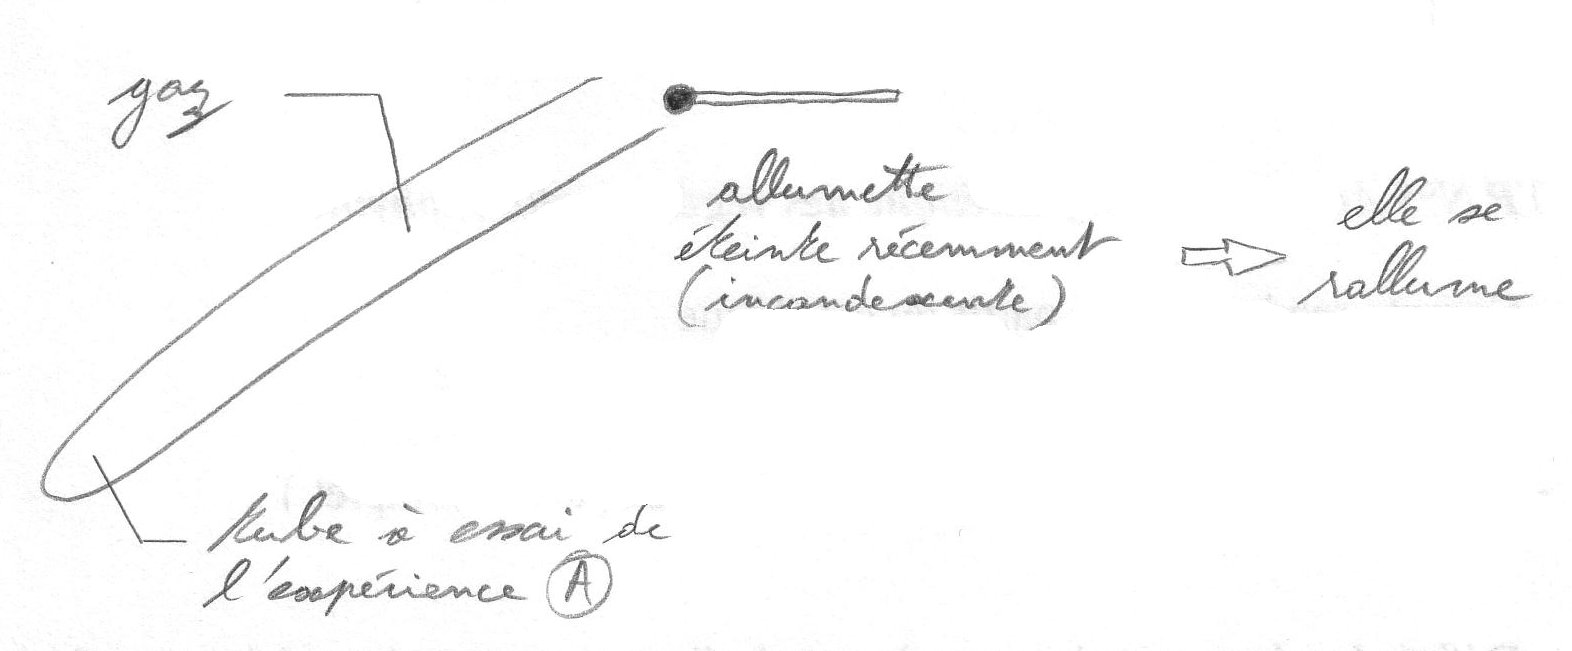 gaz
allumette
éteinte récemment
(incandescente)
elle se
rallume
tube à essai de
l'expérience A